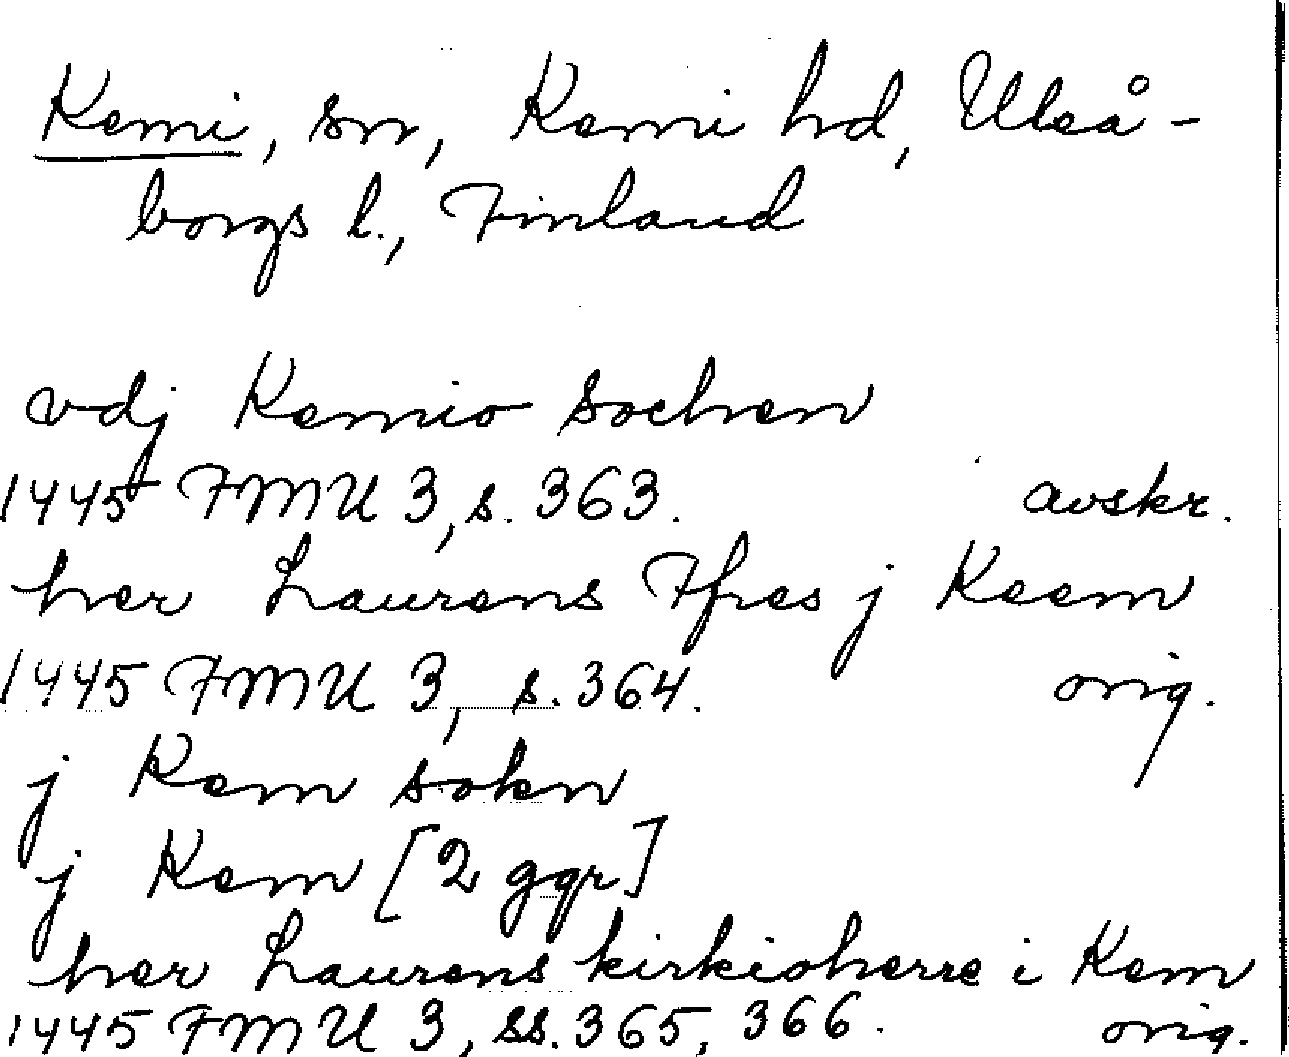 Kemi, sn, Kemi hd, Uleå-
borgs l., Finland
vdj Kemio sochen
1445 FMU 3, s. 363. avskr.
her Laurens Ifres j Keem
1445 FMU 3, s. 364. orig.
j Kem sokn
j Kem [2 ggr]
her Laurens kirkioherre i Kem
1445 FMU 3, ss. 365, 366. orig.